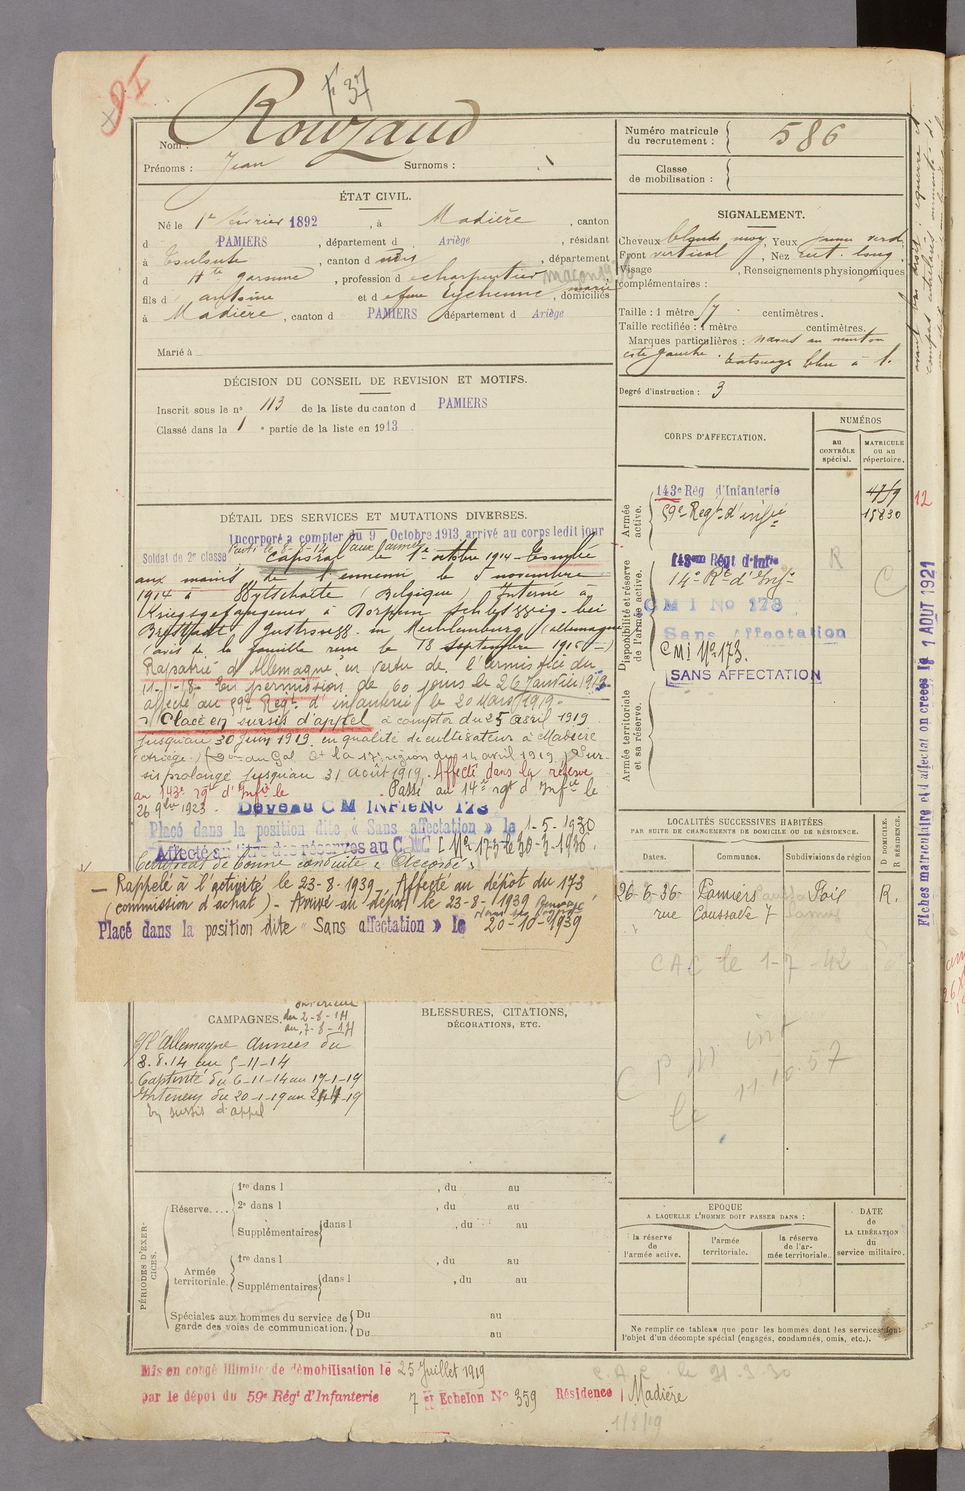 F 37
Nom : Rouzaud
Prénoms : Jean Surnoms :
Numéro matricule du recrutement : 586
Classe de mobilisation :
ÉTAT CIVIL.
Né le 1er février 1892, à Madière, canton
d PAMIERS, département d Ariège, résidant
à Toulouse, canton d dudit, département
d Hte garonne, profession d charpentier maçon
fils d antoine et d Eychenne, domiciliés
à Madière, canton d PAMIERS département d Ariège
Marié à
SIGNALEMENT.
Cheveux blonds moy, Yeux
Front vertical, Nez rect. long.
Visage , Renseignements physionomiques
complémentaires :
Taille : 1 mètre 57 centimètres.
Taille rectifiée : 1 mètre centimètres.
Marques particulières : naevus au menton
côté gauche. tatouage bleu à
Degré d'instruction : 3
DÉCISION DU CONSEIL DE REVISION ET MOTIFS.
Inscrit sous le no 113 de la liste du canton d PAMIERS
Classé dans la 1e partie de la liste en 1913.
CORPS D'AFFECTATION.
NUMÉROS
au CONTRÔLE spécial.
MATRICULE OU AU répertoire.
Armée active.
143e Rég d'Infanterie
59e Regt d'infie
4759
15830
Disponibilité et réserve de l'armée active.
143em Régt d'Infie
14e Rt d'Infie
C M I No 173
Sans Affectation
CMI No 173.
SANS AFFECTATION
Armée territoriale et sa réserve.
R
C
DÉTAIL DES SERVICES ET MUTATIONS DIVERSES.
Incorporé à compter du 9 Octobre 1913, arrivé au corps ledit jour
Soldat de 2e classe
Caporal le 1er octobre 1914 - Tombé
aux mains de l'ennemi le 5 novembre
1914 à Wytschaete (Belgique) Interné à
Kriegsgefangener à
Güstrow in Mecklemburg (allemagne)
(avis de la famille reçu le 18 septembre 1915)
Rapatrié d'Allemagne en vertu de l'armistice du
11-11-18. En permission de 60 jours le 26 Janvier 1919
affecté au 59e Regt d'infanterie le 20 Mars 1919.
Placé en sursis d'appel à compter du 25 avril 1919
jusqu'au 30 juin 1919 en qualité de cultivateur à Madière
(Ariège) (Don du Gal Ct la 17e région du 14 avril 1919) Sur-
sis prolongé jusqu'au 31 août 1919. Affecté dans la réserve
au 143e rgt d'Infie le . Passé au 14e rgt d'Infie le
26 9bre 1923. Devenu C M INFIE No 173
Placé dans la position dite « Sans affectation » le 1-5-1930
Affecté au titre des réserves au C.M.I No 173 le 30-3-1936.
Certificat de bonne conduite « Accordé »
— Rappelé à l'activité le 23-8-1939. Affecté au dépôt du 173
(commission d'achat) - Arrivé au dépôt le 23-8-1939 Renvoyé
Placé dans la position dite « Sans affectation » le 20-10-1939
LOCALITÉS SUCCESSIVES HABITÉES
PAR SUITE DE CHANGEMENTS DE DOMICILE OU DE RÉSIDENCE.
Dates. Communes. Subdivisions de région
D DOMICILE. R RÉSIDENCE.
26-6-36 Pamiers Foix R.
rue Coussade 7
CAC le 1-7-42
11.10.57
CAMPAGNES.
Intérieur du 2-8-14
au 7-8-14
c/ l'Allemagne Armées du
8.8.14 au 5-11-14
Captivité du 6-11-14 au 19-1-19
Intérieur du 20-1-19 au 24-4-19
en sursis d'appel
BLESSURES, CITATIONS,
DÉCORATIONS, ETC.
PÉRIODES D'EXERCICES.
Réserve.... 1re dans l , du au
2e dans l , du au
Supplémentaires dans l , du au
Armée territoriale. 1re dans l , du au
Supplémentaires dans l , du au
Spéciales aux hommes du service de garde des voies de communication. Du au
Du au
EPOQUE
A LAQUELLE L'HOMME DOIT PASSER DANS :
la réserve de l'armée active.
l'armée territoriale.
la réserve de l'armée territoriale.
DATE de LA LIBÉRATION du service militaire.
Ne remplir ce tableau que pour les hommes dont les services font
l'objet d'un décompte spécial (engagés, condamnés, omis, etc.).
Mis en congé illimité de démobilisation le 25 Juillet 1919
par le dépôt du 59e Régt d'Infanterie 7 et Echelon No 359 Résidence Madière
C.A.C le 31-3-30
Fiches matriculaire et d'affectation créées le 1 AOUT 1921
12